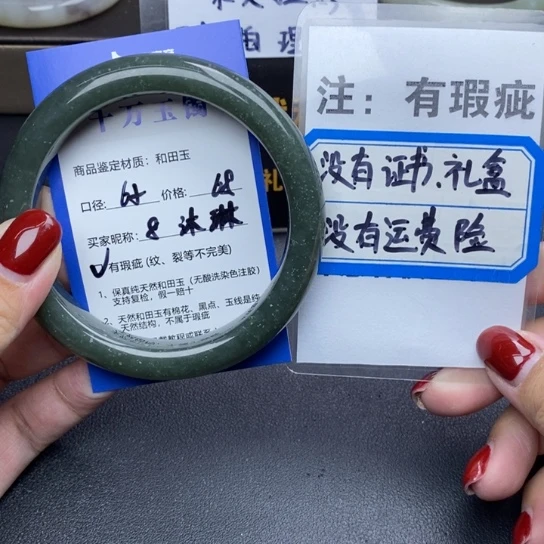 商品鉴定材质：和田玉
口径：64 价格：68
买家昵称：8 沐琳
✓有瑕疵(纹、裂等不完美)
1、保真纯天然和田玉(无酸洗染色注胶)
支持复检，假一赔十
2、天然和田玉有棉花、黑点、玉线是纯
天然结构，不属于瑕疵
注：有瑕疵
没有证书、礼盒
没有运费险